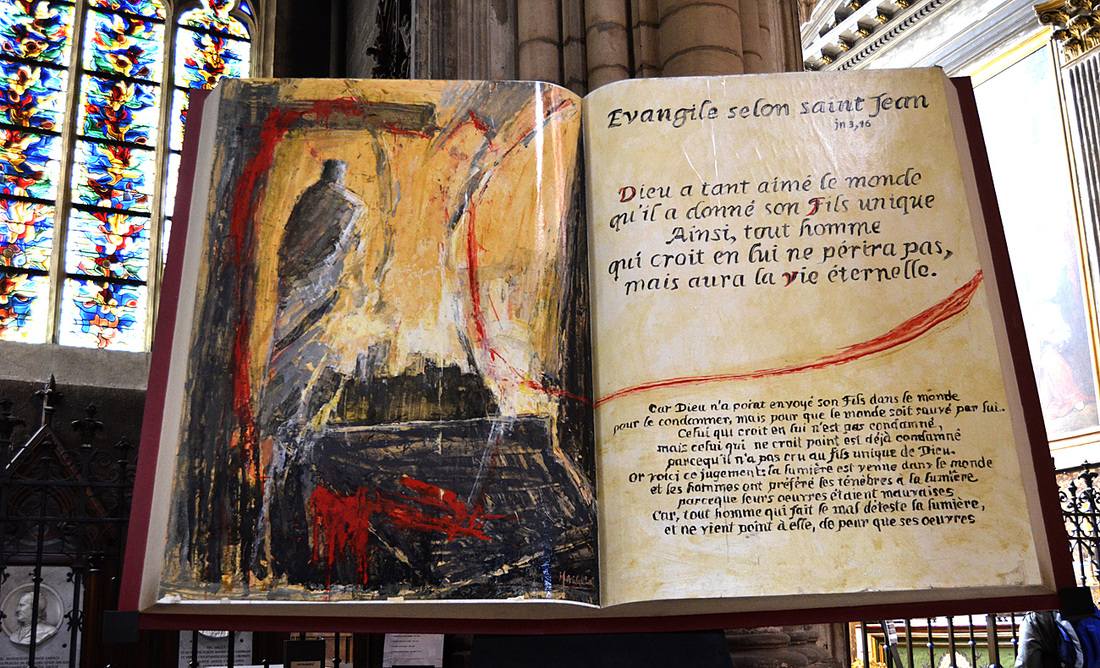 Evangile selon saint Jean
jn 3,16
Dieu a tant aimé le monde
qu'il a donné son Fils unique
Ainsi, tout homme
qui croit en lui ne périra pas,
mais aura la vie éternelle.
Car Dieu n'a point envoyé son Fils dans le monde
pour le condamner, mais pour que le monde soit sauvé par lui.
Celui qui croit en lui n'est pas condamné,
mais celui qui ne croit point est déjà condamné
parcequ'il n'a pas cru au fils unique de Dieu.
Or voici ce jugement: la lumière est venue dans le monde
et les hommes ont préféré les ténèbres à la lumière
parceque leurs oeuvres étaient mauvaises
Car, tout homme qui fait le mal déteste la lumière,
et ne vient point à elle, de peur que ses oeuvres